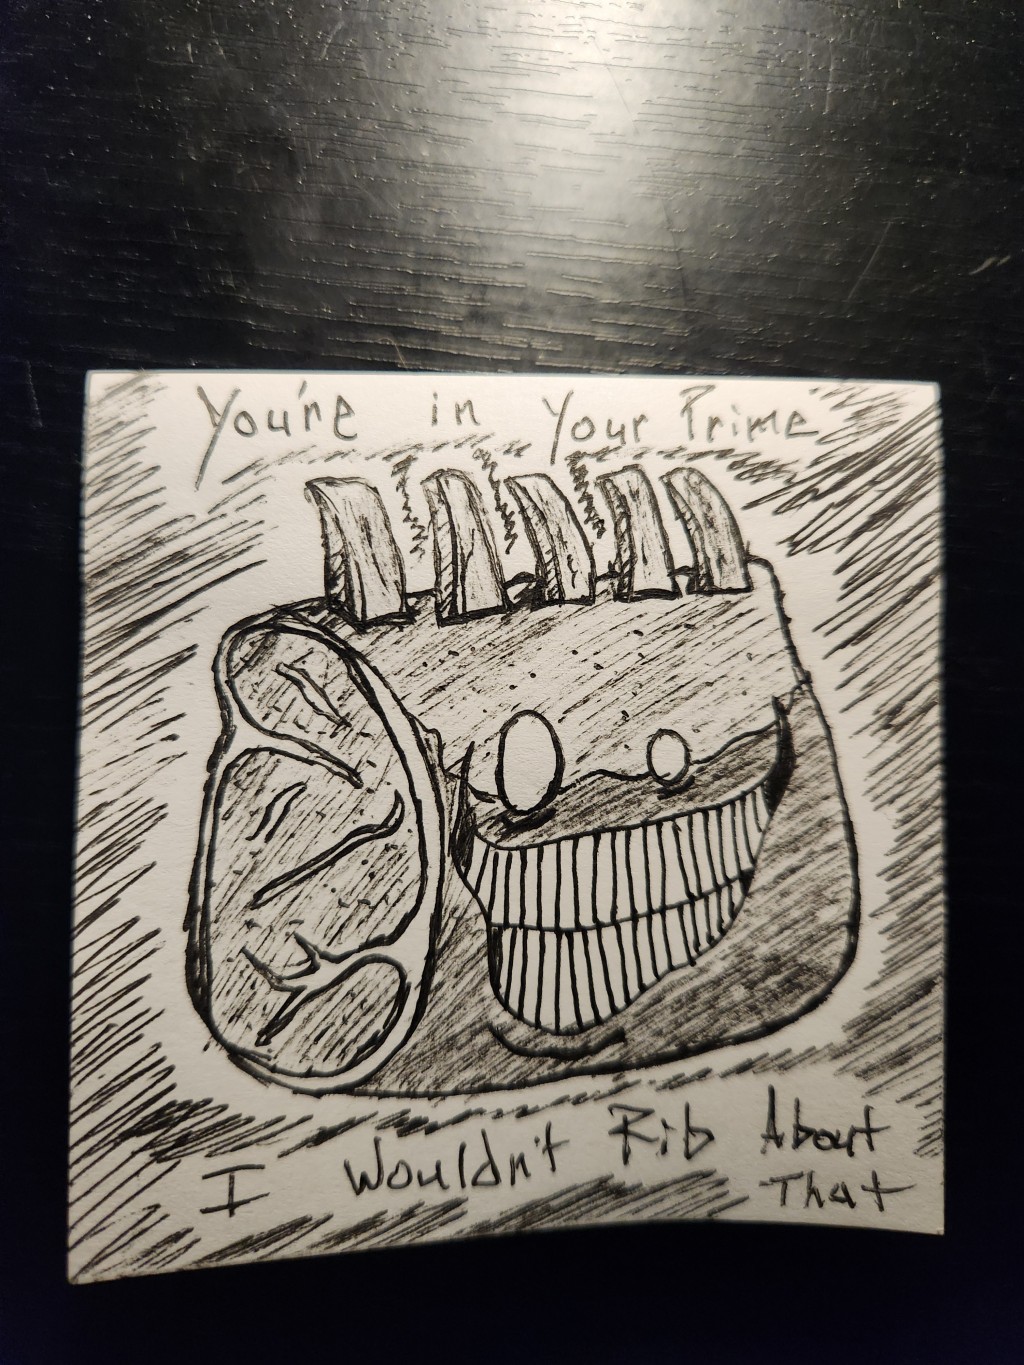 You're in Your Prime
I Wouldn't Rib About
That